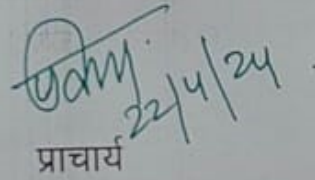 22/4/24
प्राचार्य